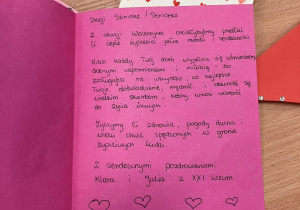 Drogi Seniorze / Seniorko
Z okazji Walentynek chcielibyśmy przesłać
Ci ciepłe życzenia pełne radości i serdeczności.
Niech każdy Twój dzień wypełnia się uśmiechem,
dobrymi wspomnieniami i miłością - bo
zasługujesz na wszystko, co najlepsze.
Twoje doświadczenie, mądrość i obecność są
wielkim skarbem, który wnosi wartość
do życia innych.
Życzymy Ci zdrowia, pogody ducha i
wielu chwil spędzonych w gronie
życzliwych ludzi.
Z serdecznymi pozdrowieniami
Klara i Julia z XXI liceum